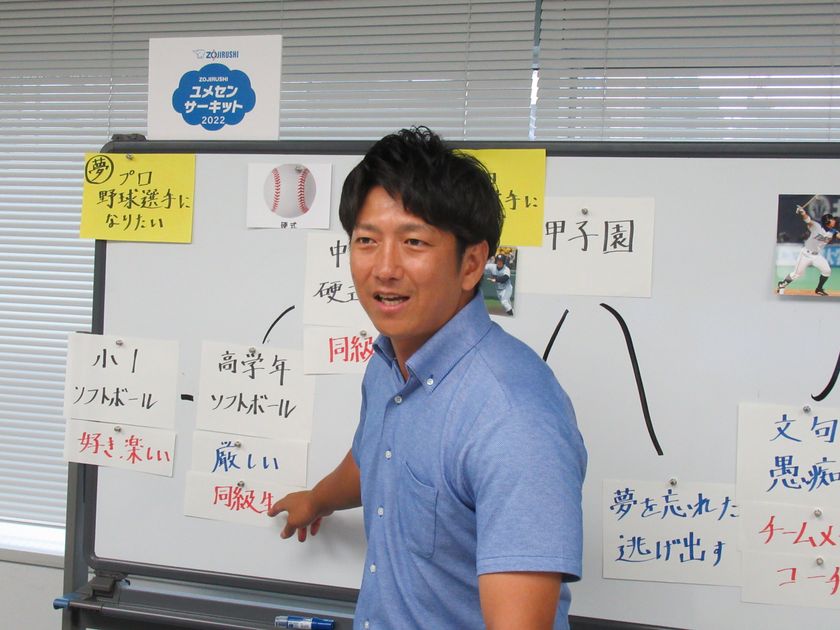 ZOJIRUSHI
ZOJIRUSHI
ユメセン
サーキット
2022
夢 プロ
野球選手に
なりたい
硬式
手に
中
硬式
同級
甲子園
小1
ソフトボール
好き、楽しい
高学年
ソフトボール
厳しい
同級生
夢を忘れた
逃げ出す
文句
愚痴
チームメ
コーチ